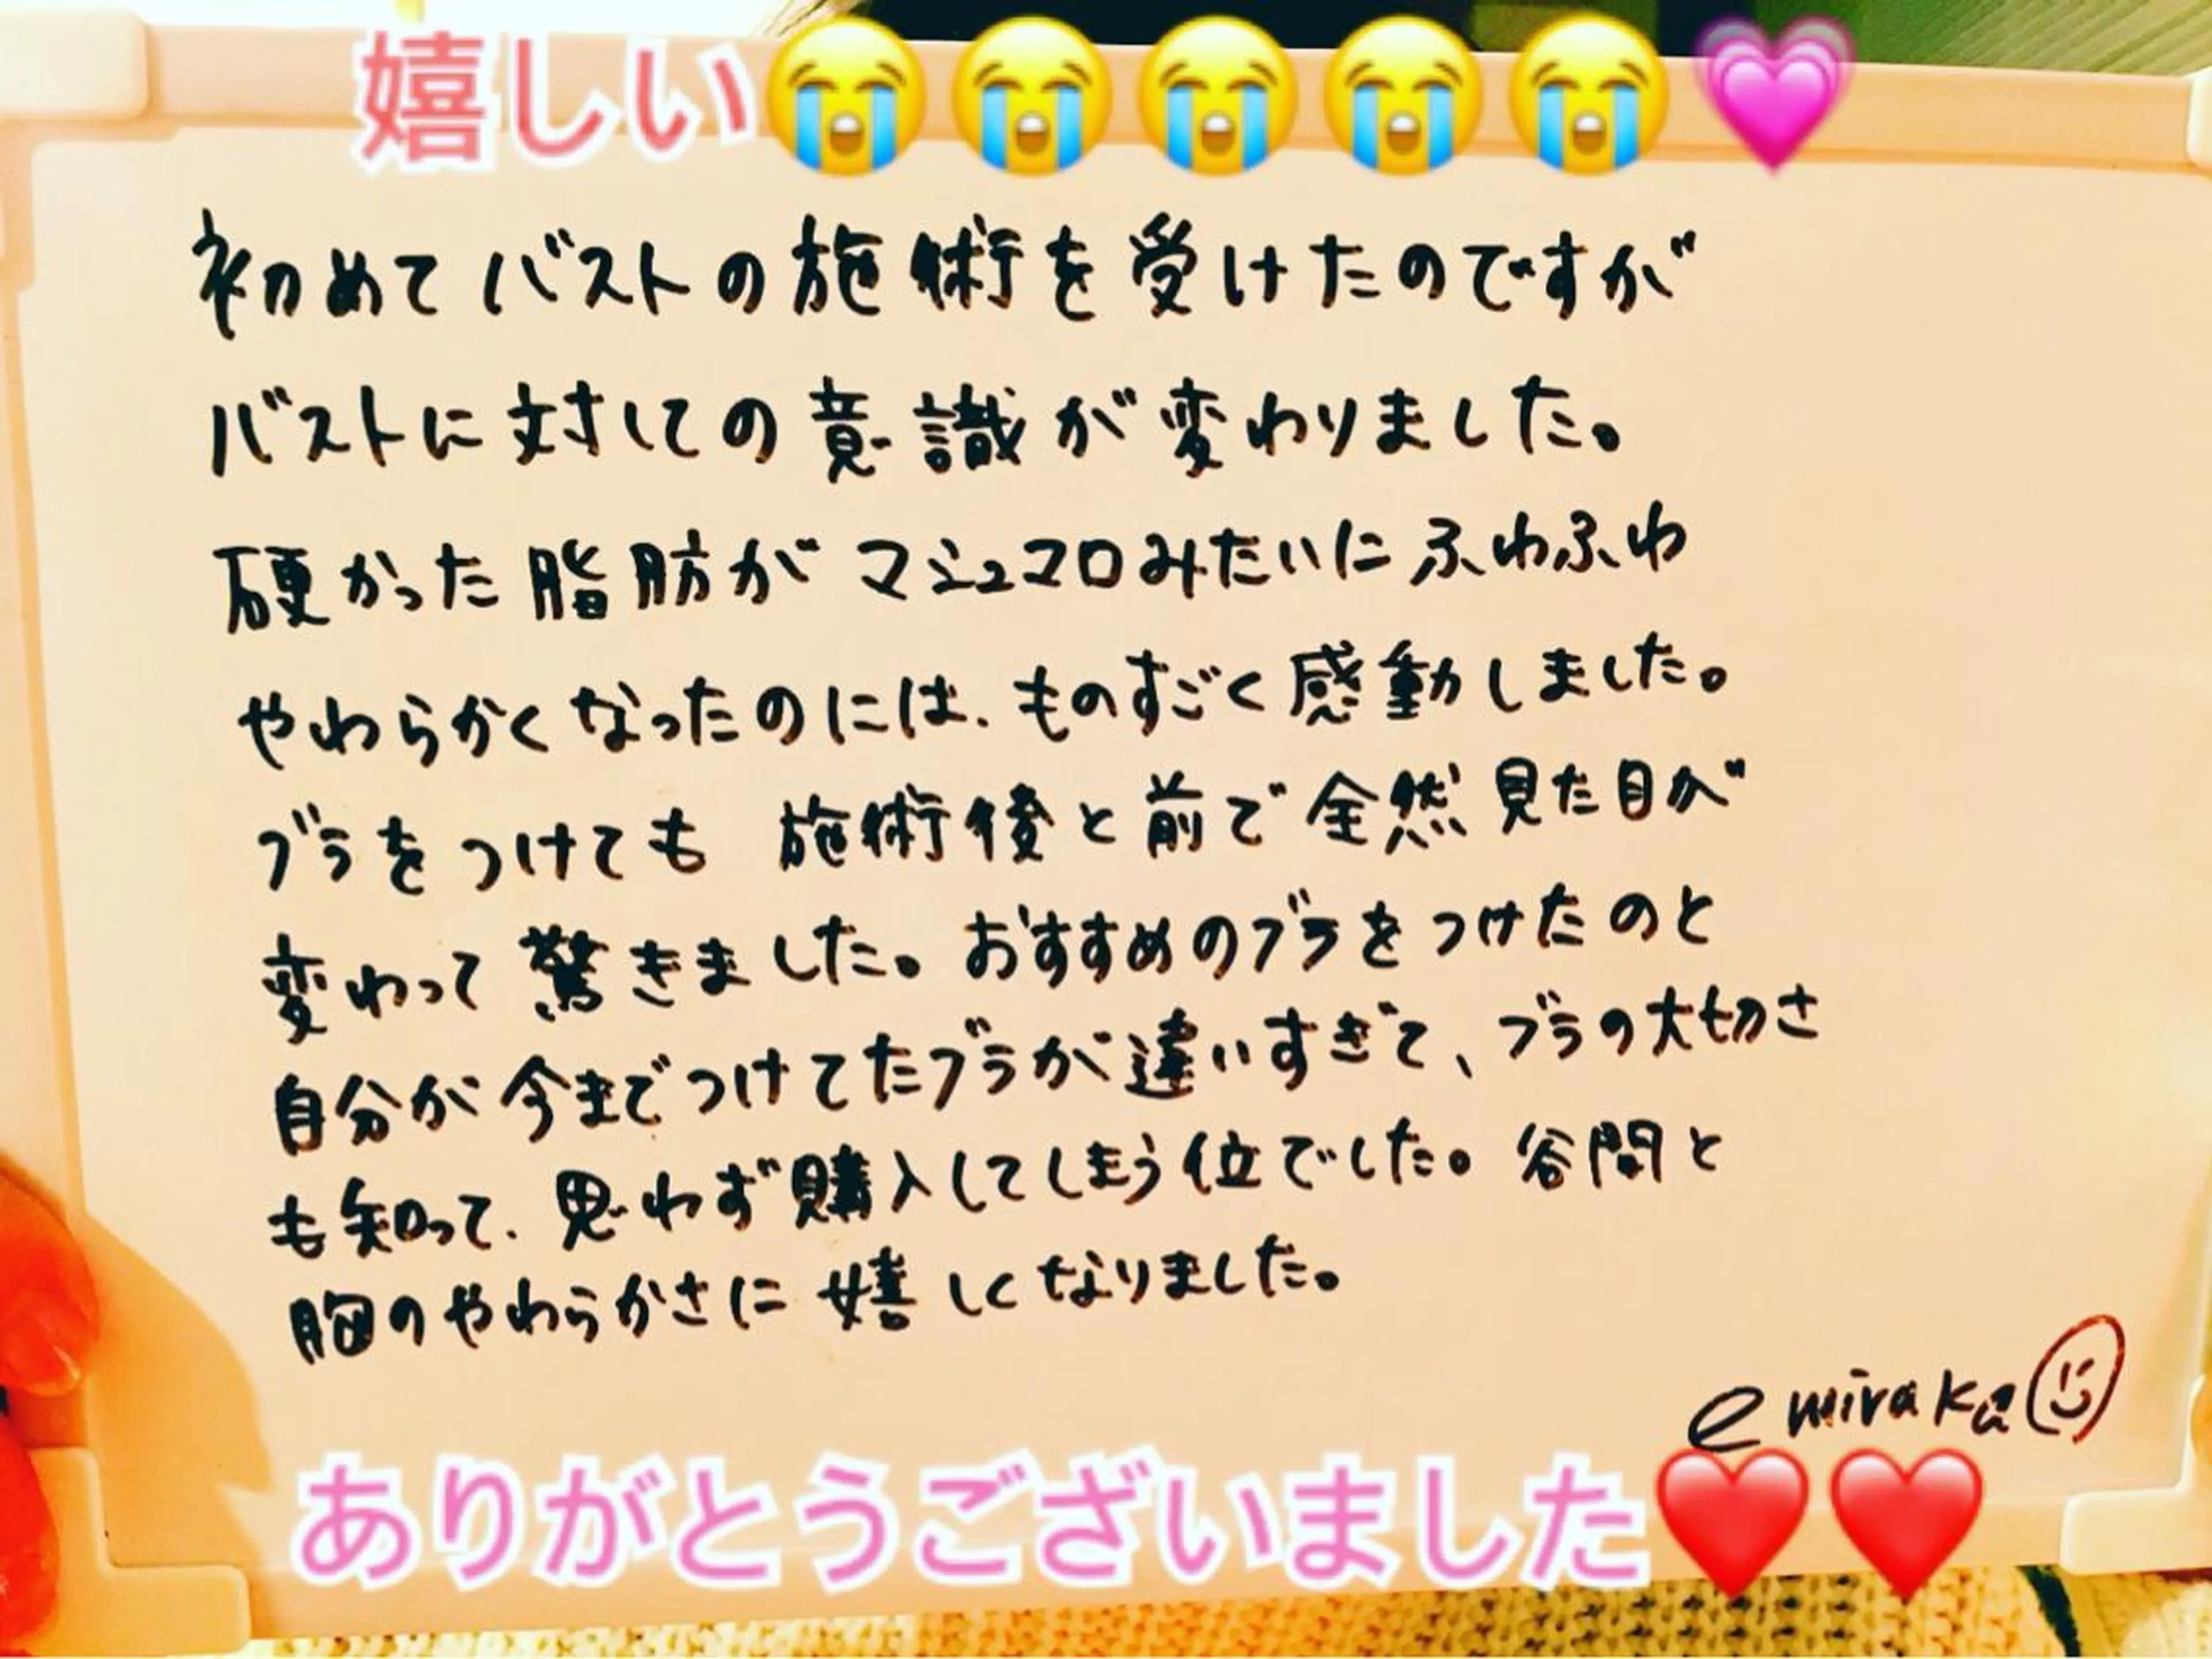 嬉しい😭😭😭😭😭💗
初めてバストの施術を受けたのですが
バストに対しての意識が変わりました。
硬かった脂肪がマシュマロみたいにふわふわ
やわらかくなったのには、ものすごく感動しました。
ブラをつけても 施術後と前で全然見た目が
変わって驚きました。おすすめのブラをつけたのと
自分が今までつけてたブラが違いすぎて、ブラの大切さ
も知って、思わず購入してしまう位でした。谷間と
胸のやわらかさに嬉しくなりました。
emiraka
ありがとうございました❤️❤️